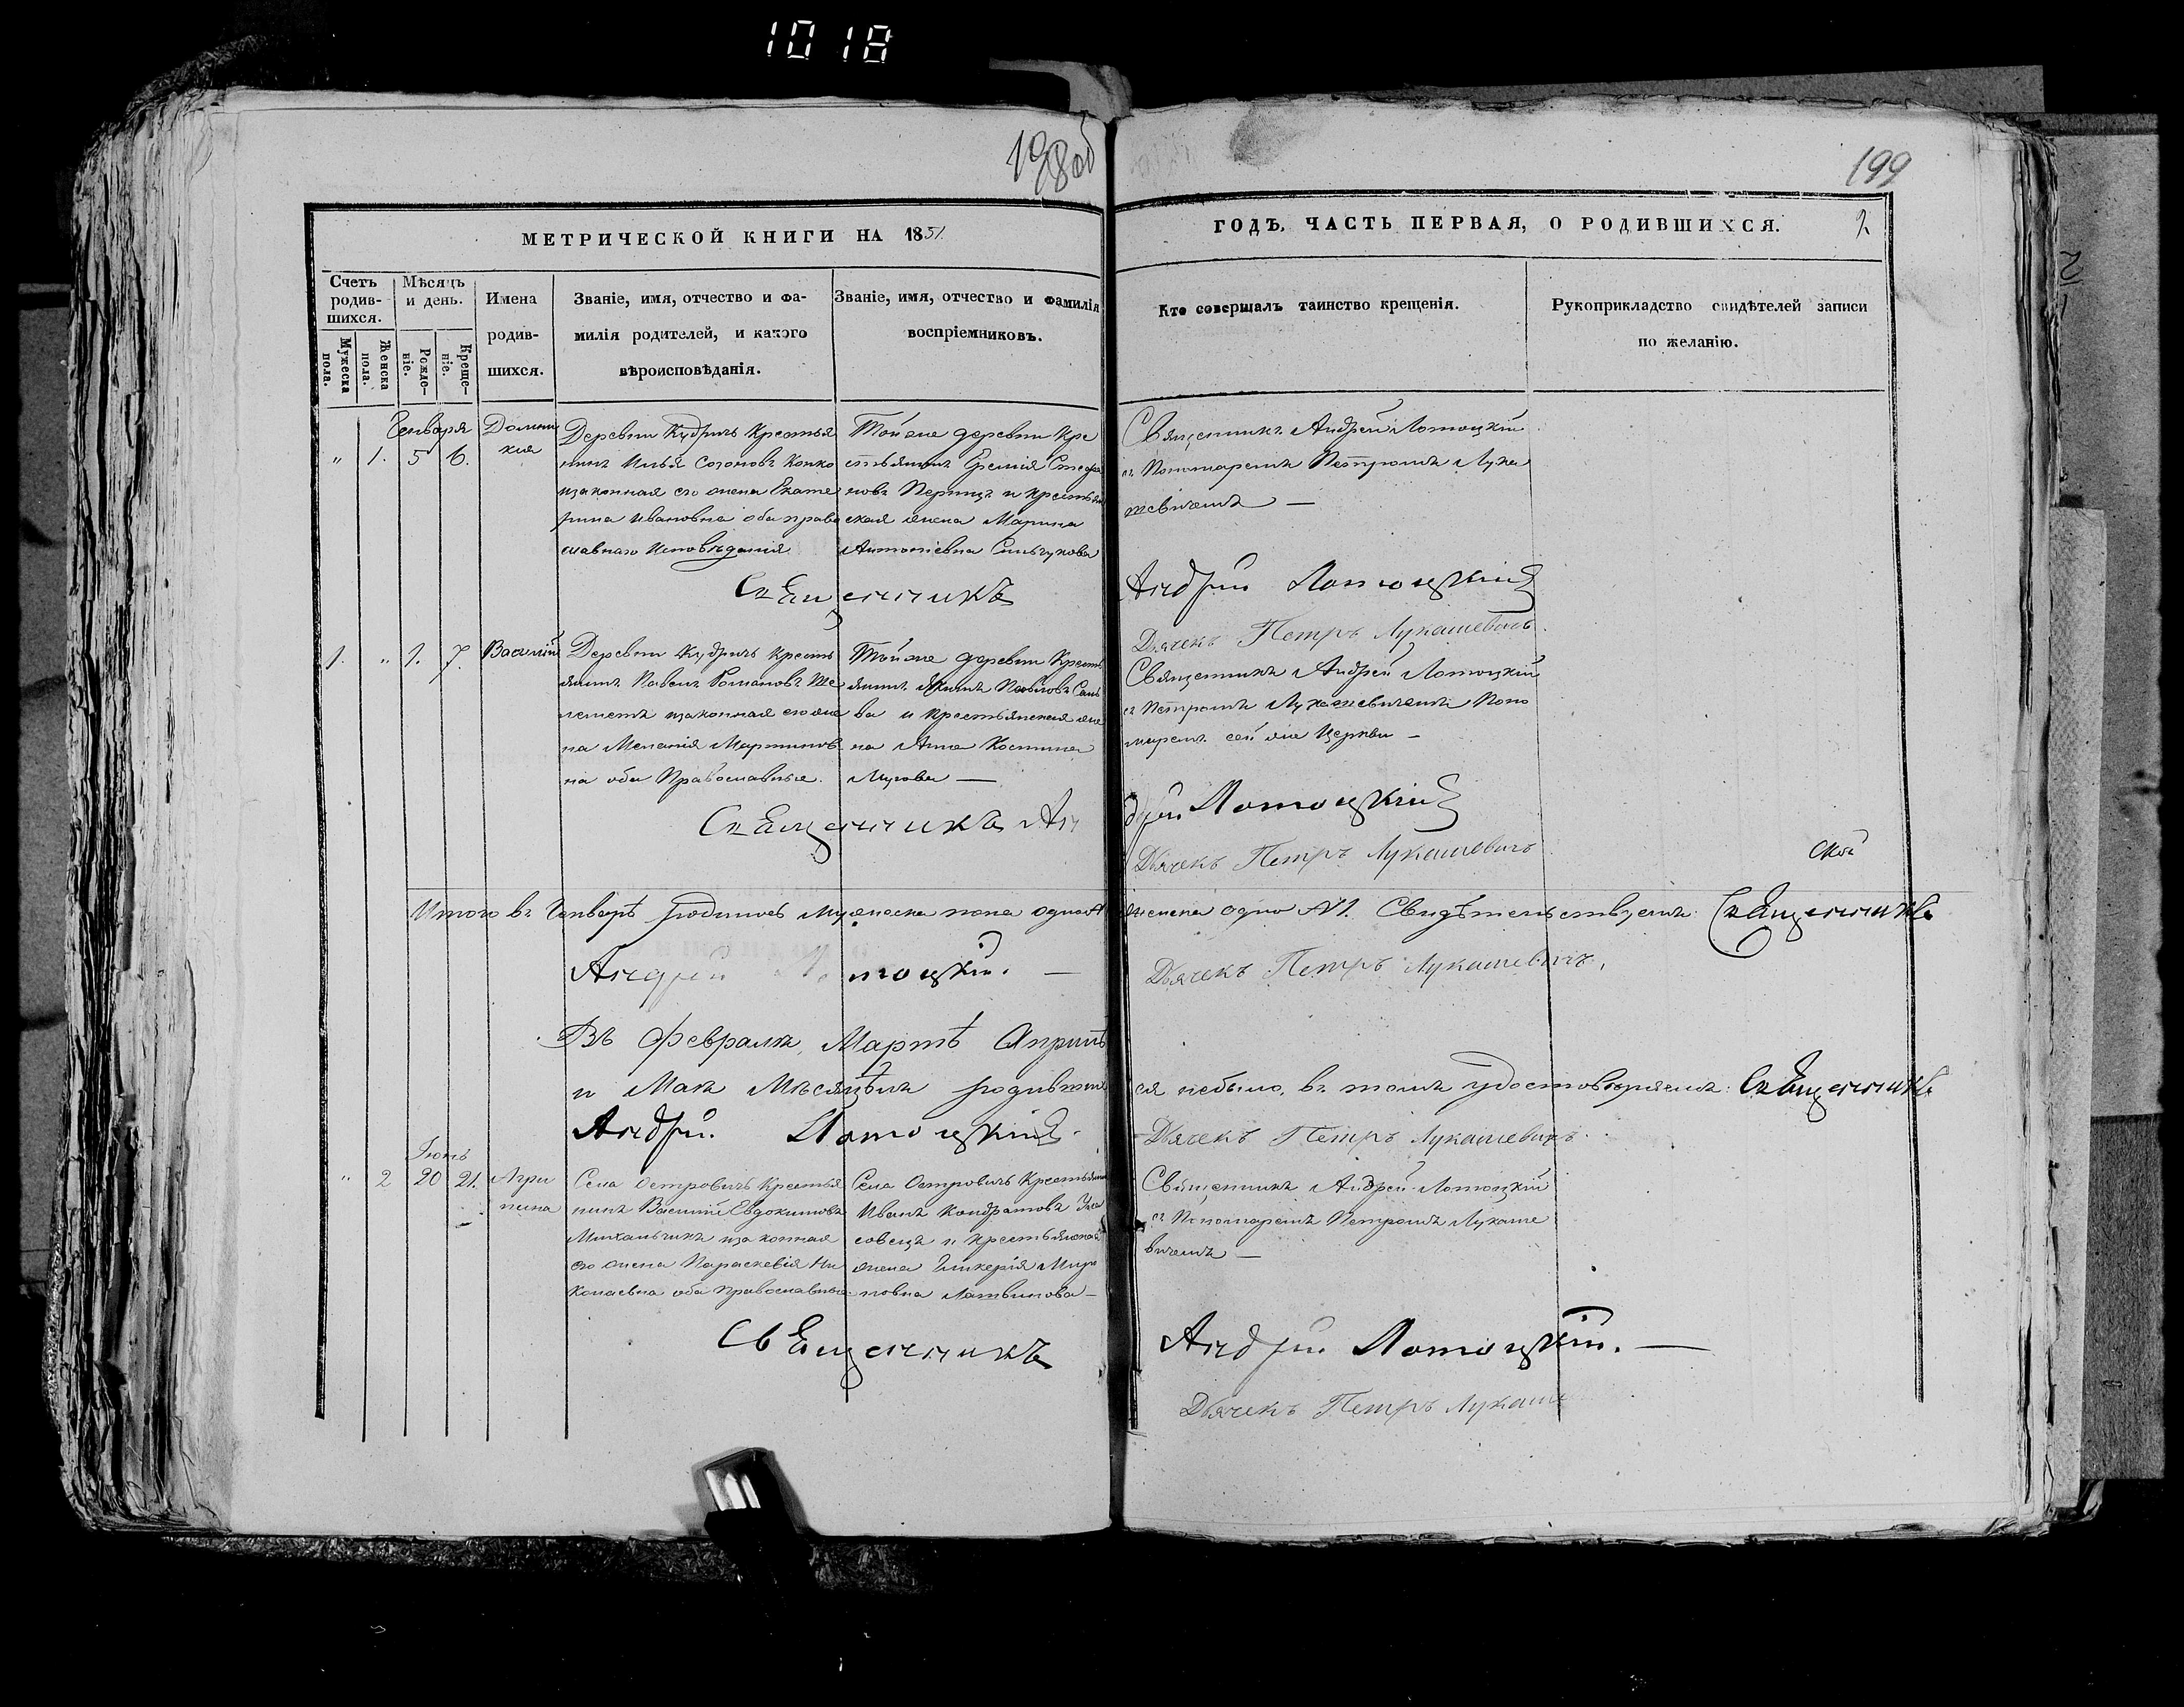 1018
198об
199
МЕТРИЧЕСКОЙ КНИГИ НА 1851.
ГОДЪ, ЧАСТЬ ПЕРВАЯ, О РОДИВШИХСЯ.
2
Счетъ родив-шихся.
Мужеска пола.
Женска пола.
Мѣсяцъ и день.
Рожде-ніе.
Креще-ніе.
Имена
родив-
шихся.
Званіе, имя, отчество и фа-
милія родителей, и какого
вѣроисповѣданія.
Званіе, имя, отчество и фамилія
воспріемниковъ.
Кто совершалъ таинство крещенія.
Рукоприкладство свидѣтелей записи
по желанію.
Генваря
" 1. 5 6.
Домни
кия
Деревни Кудричъ Крестья
нинъ Илья Созоновъ
изаконная его жена Екате
рина Ивановна оба право
славнаго Исповѣданія
Тойже деревни Кре
стьянинъ Еремія Стефа
новъ и крестьян
ская жена Марина
Антоніевна
Священникъ Андрей Лотоцкій
съ Пономаремъ Петромъ Лука
шевичемъ —
Священникъ Андрей Лотоцкій
Дьячекъ Петръ Лукашевичъ.
1. " 1. 7.
Василій
Деревни Кудричъ Кресть
янинъ Павелъ Романовъ Ше
лестъ изаконная его же
на Меланія Мартинов
на оба Православные.
Тойже деревни Кресть
янинъ Якимъ Павловъ
и Крестьянская же
на Анна Костина
—
Священникъ Андрей Лотоцкій
съ Петромъ Лукашевичемъ Поно
маремъ сей же Церкви —
Священникъ Андрей Лотоцкій
Дьячекъ Петръ Лукашевичъ
ской
Итого въ Генварѣ родилось Мужеска пола одно женска одно №1. Свидѣтельствуемъ: Священникъ
Андрей Лотоцкій. —
Дьячекъ Петръ Лукашевичъ,
Въ Февралѣ, Мартѣ Априлѣ
и Маѣ Мѣсяцѣхъ родившихся небыло, въ томъ удостовѣряемъ: Священникъ
Андрей Лотоцкій.
Дьячекъ Петръ Лукашевичъ.
Іюнь
" 2 20 21.
Агри
пина
Села Островичъ Крестья
нинъ Василій Евдокимовъ
Михальчикъ изаконная
его жена Параскевія Ни
колаевна оба Православные.
Села Островичъ Крестьянинъ
Иванъ Кондратовъ
и Крестьянская
жена Гликерія Миро
новна Литвинова —
Священникъ Андрей Лотоцкій
съ Пономаремъ Петромъ Лукаше
вичемъ —
Священникъ Андрей Лотоцкій. —
Дьячекъ Петръ Лукаше